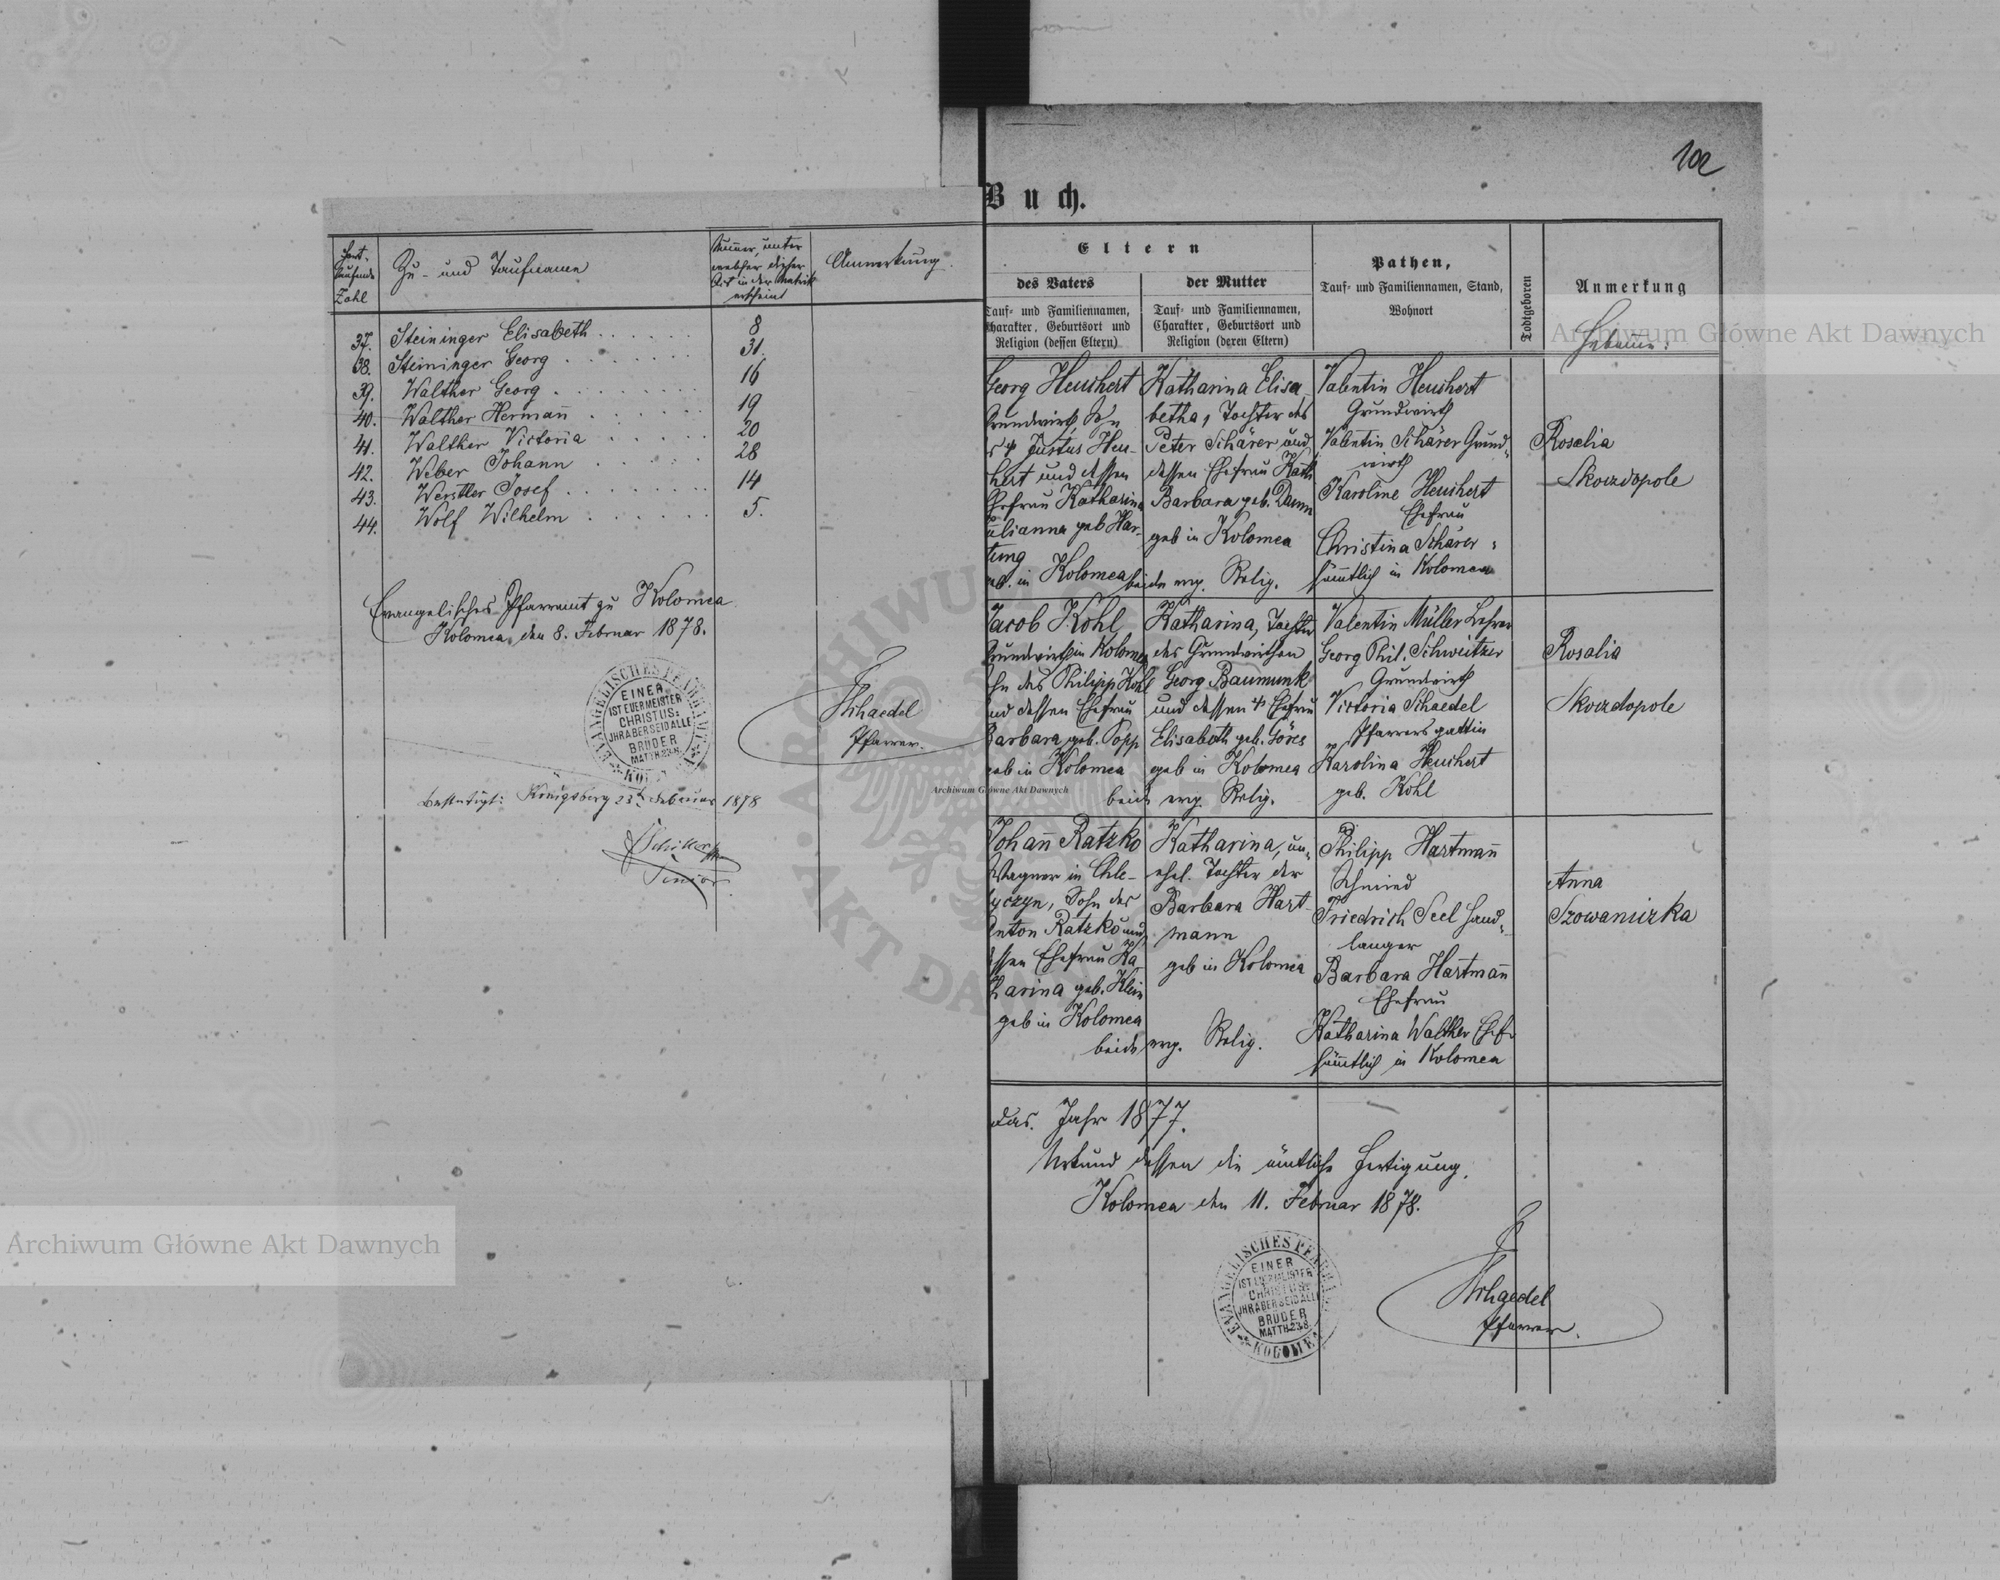 102
Fort-
laufende
Zahl
Zu- und Taufname
Numer, unter
welcher dieser
Act in der Matrik
erscheint
Anmerkung
37. Steininger Elisabeth . . . . . 8
38. Steininger Georg . . . . . . 31.
39. Walther Georg . . . . . . . 16
40. Walther Hermañ . . . . . . 19
41. Walther Victoria . . . . . 20
42. Weber Johann . . . . . 28
43. Werstler Josef . . . . . . . 14
44. Wolf Wilhelm . . . . . . 5.
Evangelisches Pfarramt zu Kolomea
Kolomea, den 8. Februar 1878.
EVANGELISCHES PFARRAMT
KOLOMEA
EINER
IST EUER MEISTER
CHRISTUS:
JHR ABER SEID ALLE
BRÜDER
MATTH.23.8.
Schaedel
Pfarrer.
bestätigt: Königsberg 23t Februar 1878
Senior
Buch.
Eltern
des Vaters
Tauf- und Familiennamen,
Charakter, Geburtsort und
Religion (dessen Eltern)
der Mutter
Tauf- und Familiennamen,
Charakter, Geburtsort und
Religion (deren Eltern)
Pathen,
Tauf- und Familiennamen, Stand,
Wohnort
Todtgeboren
Anmerkung
Hebame:
Georg Heuchert
Grundwirth, Sohn
Justus Heu-
chert und dessen
Ehefrau Katharina
Julianna geb Har-
tung
geb. in Kolomea
Katharina Elisa
betha, Tochter des
Peter Schärer und
dessen Ehefrau Kath
Barbara geb. Damm
geb in Kolomea
beide evg. Relig.
Valentin Heuchert
Grundwirth
Valentin Schärer Grund-
wirth
Karoline Heuchert
Ehefrau
Christina Schärer
sämtlich in Kolomea
Rosalia
Skorzdopole
Jacob Kohl
Grundwirth in Kolomea
Sohn des Philipp Kohl
und dessen Ehefrau
Barbara geb. Popp
geb in Kolomea
Katharina, Tochter
des Grundwirthen
Georg Baumunk
und dessen † Ehefrau
Elisabeth geb. Göres
geb in Kolomea
beide evg. Relig.
Valentin Müller Lehrer
Georg Phil. Schweitzer
Grundwirth
Victoria Schaedel
Pfarrers gattin
Karolina Heuchert
geb. Kohl
Rosalia
Skorzdopole
Johañ Ratzko
Wagner in Chle-
byczyn, Sohn des
Anton Ratzko und
dessen Ehefrau Ka
tharina geb. Klein
geb in Kolomea
Katharina, un-
ehel. Tochter der
Barbara Hart-
mann
geb in Kolomea
beide evg. Relig.
Philipp Hartmañ
Schmied
Friedrich Seel Hand-
langer
Barbara Hartmañ
Ehefrau
Katharina Walther Ehefr
sämtlich in Kolomea
Anna
Szowaniczka
das Jahr 1877.
Urkund dessen die ämtliche Fertigung.
Kolomea den 11. Februar 1878.
EVANGELISCHES PFARRAMT
KOLOMEA
EINER
IST EUER MEISTER
CHRISTUS:
JHR ABER SEID ALLE
BRÜDER
MATTH.23.8.
Schaedel
Pfarrer.
Archiwum Główne Akt Dawnych
Archiwum Główne Akt Dawnych
Archiwum Główne Akt Dawnych
ARCHIWUM
AKT DA